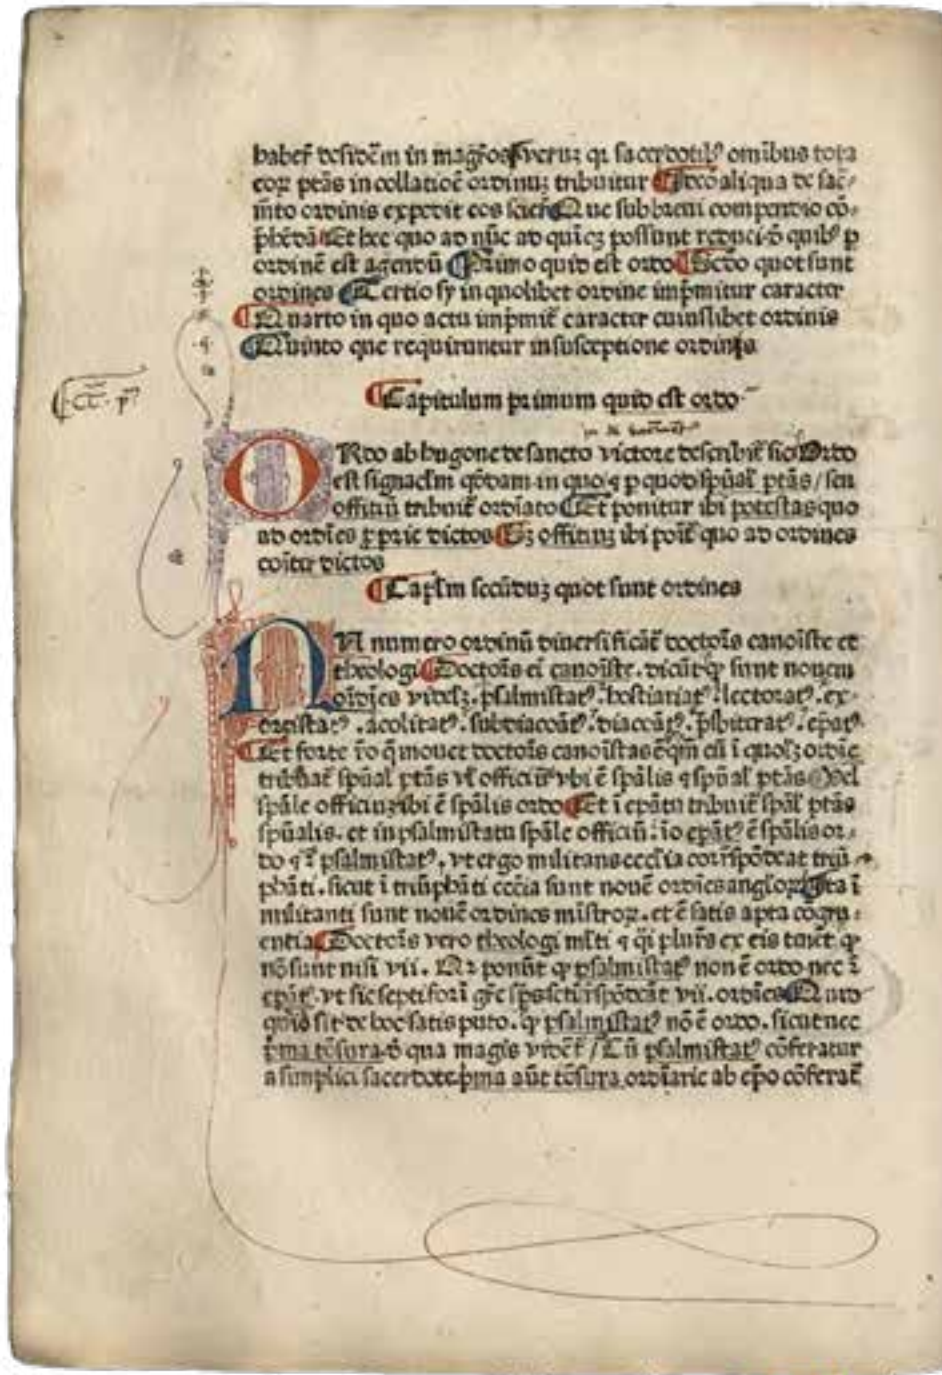 haber̄ desidēm in magr̄os veruꝫ qꝛ sacerdotibꝰ omībus tota
eoꝝ ptās in collatiōe ordinuꝫ tribuitur Ideo aliqua de sac̄
m̄to ordinis expedit eos scire Que sub breui compendio cō
Et hec quo ad nūc ad quīcꝫ possunt reduci quibꝰ p
ordinē est agendū Primo quid est ordo Scd̄o quot sunt
ordines Tertio sy in quolibet ordine imp̄mitur caracter
Quarto in quo actu imp̄mit̄ caracter cuiuslibet ordinis
Quinto que requiruntur in susceptione ordinis
Capitulum primum quid est ordo
ORdo ab hugone de sancto victore describit̄ sic Ordo
est signacl̄m qd̄dam in quo ⁊ p quod sp̄ual̄ ptās / seu
offitiū tribuit̄ ordīato Et ponitur ibi potestas quo
ad ordīes pprie dictos Sꝫ offitiuꝫ ibi poīt̄ quo ad ordines
cōiter dictos
Capl̄m secūduꝫ quot sunt ordines
IN numero ordinū diuersificāt̄ doctor̄s canoīste et
theologi Doctor̄s eī canoīste. dicūt ꝙ sunt nouem
ordīes videlꝫ. psalmistatꝰ. hostiariatꝰ. lectoratꝰ. ex
orcistatꝰ. acolitatꝰ. subdiacoātꝰ. diaccātꝰ. p̄sbiteratꝰ. ep̄atꝰ
Et forte rō q̄ mouet doctor̄s canoīstas ē cū ī quolꝫ ordīe
sp̄ual̄ ptās vl̄ officiū vbi ē sp̄alis ⁊ sp̄ual̄ ptās Vel
sp̄ale officiuꝫ ibi ē sp̄alis ordo Et ī ep̄atu tribuit̄ sp̄al̄ ptās
sp̄ualis. et in psalmistatu sp̄ale officiū. iō ep̄atꝰ ē sp̄alis or
do ⁊ ī psalmistatꝰ. vt ergo militans eccl̄ia corr̄spōdeat triū
phāti. sicut ī triūphāti ecc̄ia sunt nouē ordīes angl̄oꝝ Ita ī
militanti sunt nouē ordines mīstroꝝ. et ē satis apta cōgru
entia Doctor̄s vero theologi ml̄ti ⁊ q̄i plur̄s ex eis tenēt ꝙ
nō sunt nisi vii. Nā ponūt ꝙ psalmistatꝰ non ē ordo nec ī
ep̄atꝰ. vt sic septiformi gr̄e sp̄s sctī r̄spōdeāt vii. ordīes Quid
quid sit de hoc satis puto. ꝙ psalmistatꝰ nō ē ordo. sicut nec
p̄ma tōsura d̄ qua magis videt̄ / Cū psalmistatꝰ cōferatur
a simplici sacerdote p̄ma aūt tōsura ordīarie ab ep̄o cōferat̄